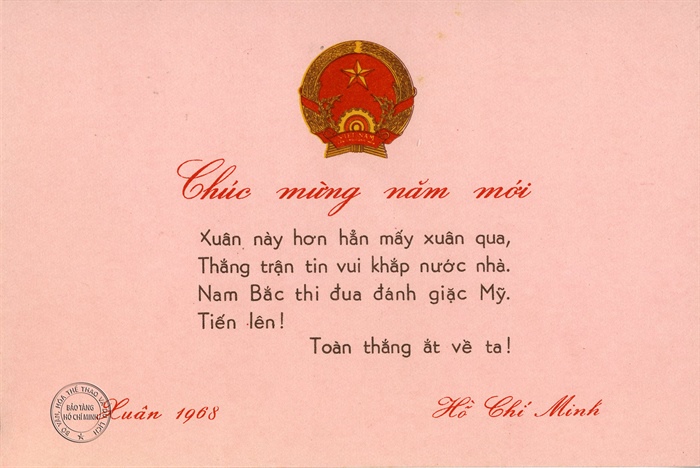 VIỆT NAM
Chúc mừng năm mới
Xuân này hơn hẳn mấy xuân qua,
Thắng trận tin vui khắp nước nhà.
Nam Bắc thi đua đánh giặc Mỹ.
Tiến lên!
Toàn thắng ắt về ta!
Xuân 1968
Hồ Chí Minh
BỘ VĂN HÓA THỂ THAO VÀ DU LỊCH
BẢO TÀNG
HỒ CHÍ MINH